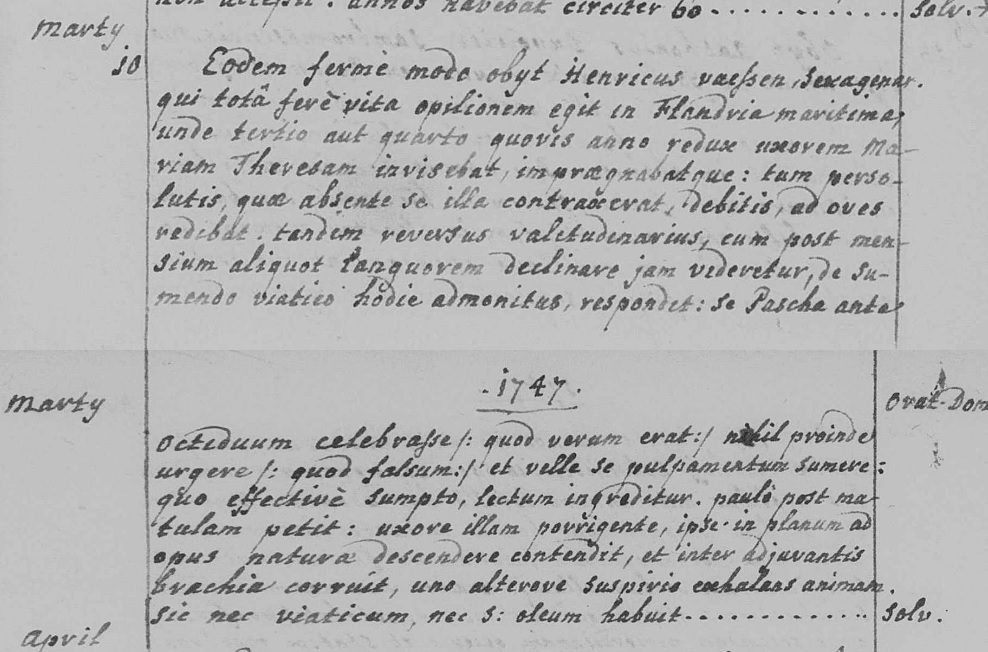 non accepit. annos habebat circiter 60 . . . . . . . . . . . . . solv.
Marty
10 Eodem ferme modo obyt Henricus vaessen, sexagenar.
qui totâ ferè vita opilionem egit in Flandria maritima,
unde tertio aut quarto quovis anno redux uxorem Ma-
riam Theresam invisebat, imprægnabatque: tum perso-
lutis, quæ absente se illa contraxerat, debitis, ad oves
redibat. tandem reversus valetudinarius, cum post men-
sium aliquot languorem declinare jam videretur, de su-
mendo viatico hodie admonitus, respondet: se Pascha ante
. 1747 .
Marty
Orat. Dom
octiduum celebrasse /: quod verum erat:/ nihil proinde
urgere /: quod falsum:/ et velle se pulpamentum sumere:
quo effectivè sumpto, lectum ingreditur. paulò post ma-
tulam petit: uxore illam porrigente, ipse in planum ad
opus naturæ descendere contendit, et inter adjuvantis
brachia corruit, uno alterove suspirio exhalans animam.
sic nec viaticum, nec S: oleum habuit . . . . . . . . . . . . . solv.
April